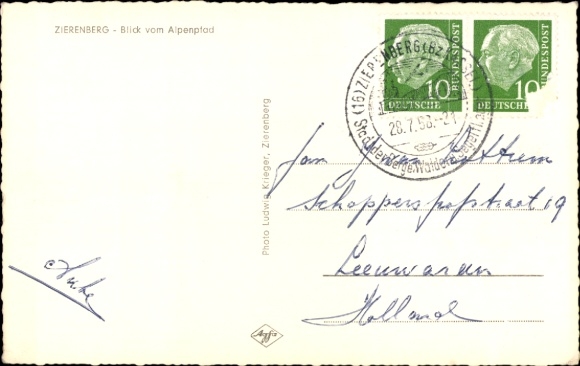 ZIERENBERG - Blick vom Alpenpfad
10 10
DEUTSCHE BUNDESPOST
DEUTSCHE BUNDESPOST
(16) ZIERENBERG (Bz. KASSEL)
28.7.58.-21
Stadt der Berge, Wälder
Photo Ludwig Krieger, Zierenberg
Fam.
19
Leeuwarden
Holland
Anke
Agfa